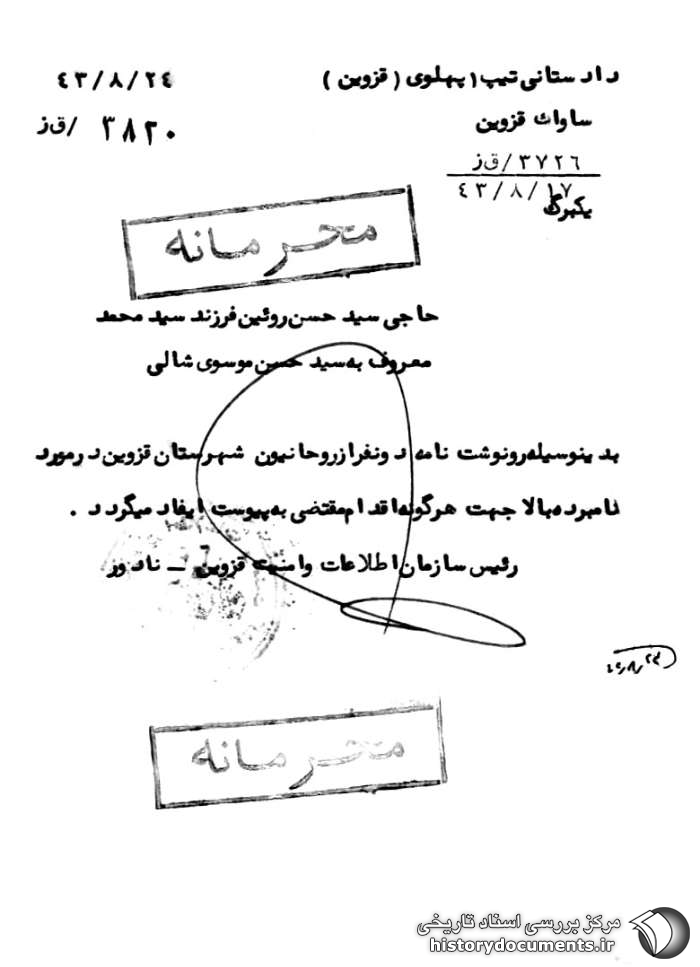 دادستانی تیپ ۱ پهلوی ( قزوین )
۴۳/۸/۲۴
ساواک قزوین
۳۸۲۰ /ق ز
۳۷۲۶/ق ز
۴۳/۸/۱۷
یکبرگ
محرمانه
حاجی سید حسن روئین فرزند سید محمد
معروف به سید حسن موسوی شالی
بدینوسیله رونوشت نامه دونفر از روحانیون شهرستان قزوین در مورد
نامبرده بالا جهت هرگونه اقدام مقتضی به پیوست ایفاد میگردد .
رئیس سازمان اطلاعات وامنیت قزوین – نادور
محرمانه
مرکز بررسی اسناد تاریخی
historydocuments.ir